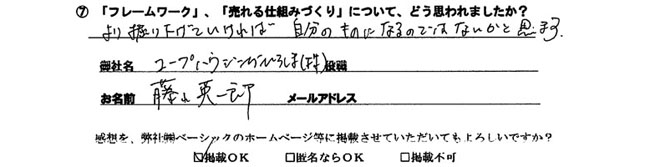 ⑦「フレームワーク」、「売れる仕組みづくり」について、どう思われましたか？
より掘り下げていければ 自分のものになるのではないかと思います。
御社名 コープハウジングひろしま(株) 役職
お名前 藤山 英一郎 メールアドレス
感想を、弊社㈱ベーシックのホームページ等に掲載させていただいてもよろしいですか？
☑掲載OK □匿名ならOK □掲載不可